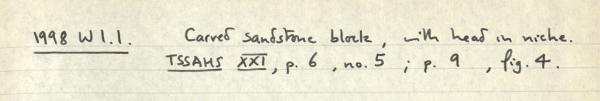 1998 W 1.1. Carved sandstone block, with head in niche.
TSSAHS XXI, p. 6, no. 5; p. 9, fig. 4.